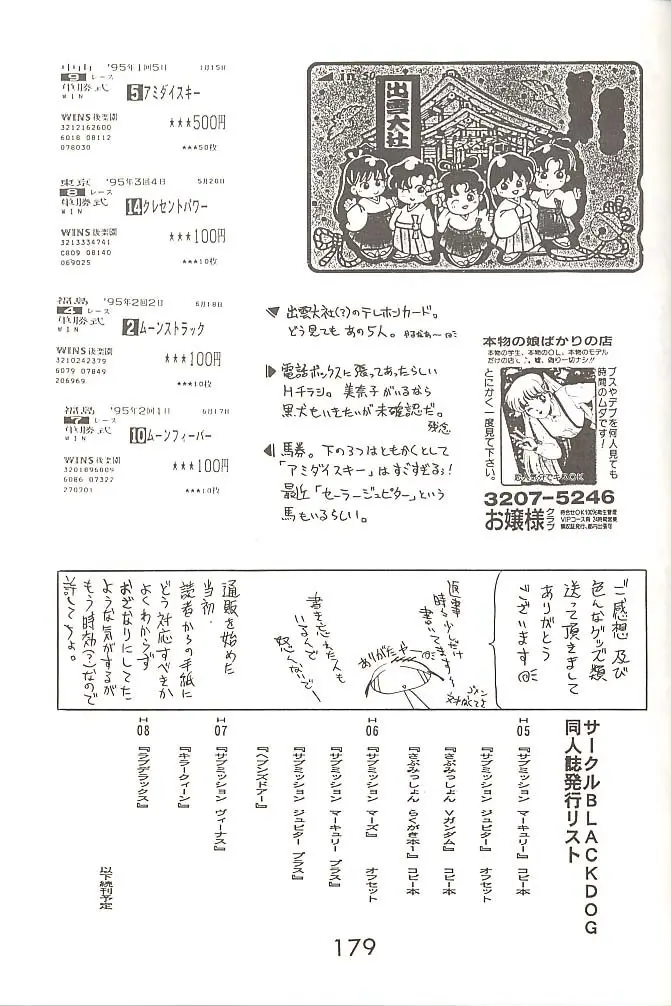 中山 '95年1回5日 1月15日
9 レース
単勝式
WIN
5 アミダイスキー
WINS後楽園
3212162600
6018 08112
078030
★★★500円
★★★50枚
東京 '95年3回4日 5月28日
8 レース
単勝式
WIN
14 クレセントパワー
WINS後楽園
3213334741
C809 08140
069025
★★★100円
★★★10枚
福島 '95年2回2日 6月18日
4 レース
単勝式
WIN
2 ムーンストラック
WINS後楽園
3210242379
6079 07849
206969
★★★100円
★★★10枚
福島 '95年2回1日 6月17日
7 レース
単勝式
WIN
10 ムーンフィーバー
WINS後楽園
3201896809
6086 07322
270701
★★★100円
★★★10枚
50
出雲大社
出雲大社(?)のテレホンカード。
どう見てもあの5人。
電話ボックスに張ってあったらしい
Hチラシ。美奈子がいるなら
黒犬もいきたいが未確認だ。
残念
馬券。下の3つはともかくとして
「アミダイスキー」はすごすぎるぅ!
最近「セーラージュピター」という
馬もいるらしい。
本物の娘ばかりの店
本物の学生、本物のOL、本物のモデル
だけの店で、嘘、偽り一切ナシ!!
ブスやデブを何人見ても
時間のムダです!
とにかく一度見て下さい。
恋人気分でキスOK
3207-5246
お嬢様クラブ
待合せOK100%衛生管理
VIPコース有 24時間営業
領収証発行、都内出張可
ご感想 及び
色んなグッズ類
送って頂きまして
ありがとう
ございます
返事
時々少しだけ
書いてますー
ありがたや
書き忘れた人も
いるんで
怒んないでー
通販を始めた
当初、
読者からの手紙に
どう対応すべきか
よくわからず
おざなりにしてた
ような気がするが
もう時効(?)なので
許してちょ。
サークルBLACKDOG
同人誌発行リスト
H05
『サブミッション マーキュリー』 コピー本
『サブミッション ジュピター』 オフセット
『さぶみっしょん Vガンダム』 コピー本
『さぶみっしょん らくがきホー』 コピー本
H06
『サブミッション マーズ』 オフセット
『サブミッション マーキュリー プラス』
『サブミッション ジュピター プラス』
『ヘブンズドアー』
H07
『サブミッション ヴィーナス』
『キラークィーン』
H08
『ラブデラックス』
以下続刊予定
179